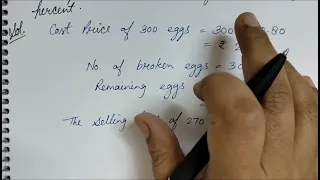 percent.
Sol. Cost Price of 300 eggs = 300 .80
= ₹
No of broken eggs = 30
Remaining eggs
The selling of 270